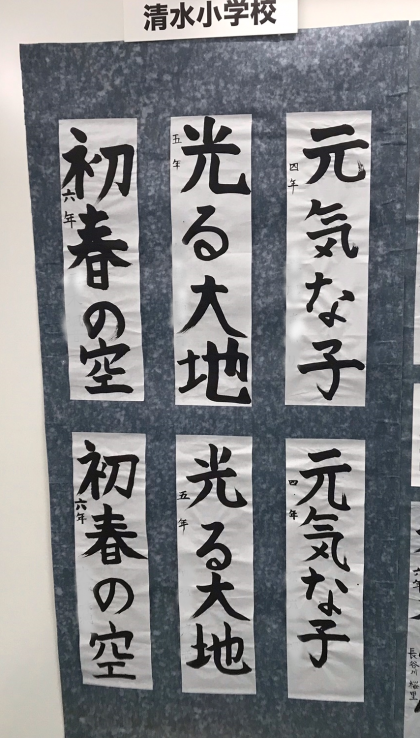 清水小学校
元気な子
四年
光る大地
五年
初春の空
六年
元気な子
四年
光る大地
五年
初春の空
六年
六年
長谷川